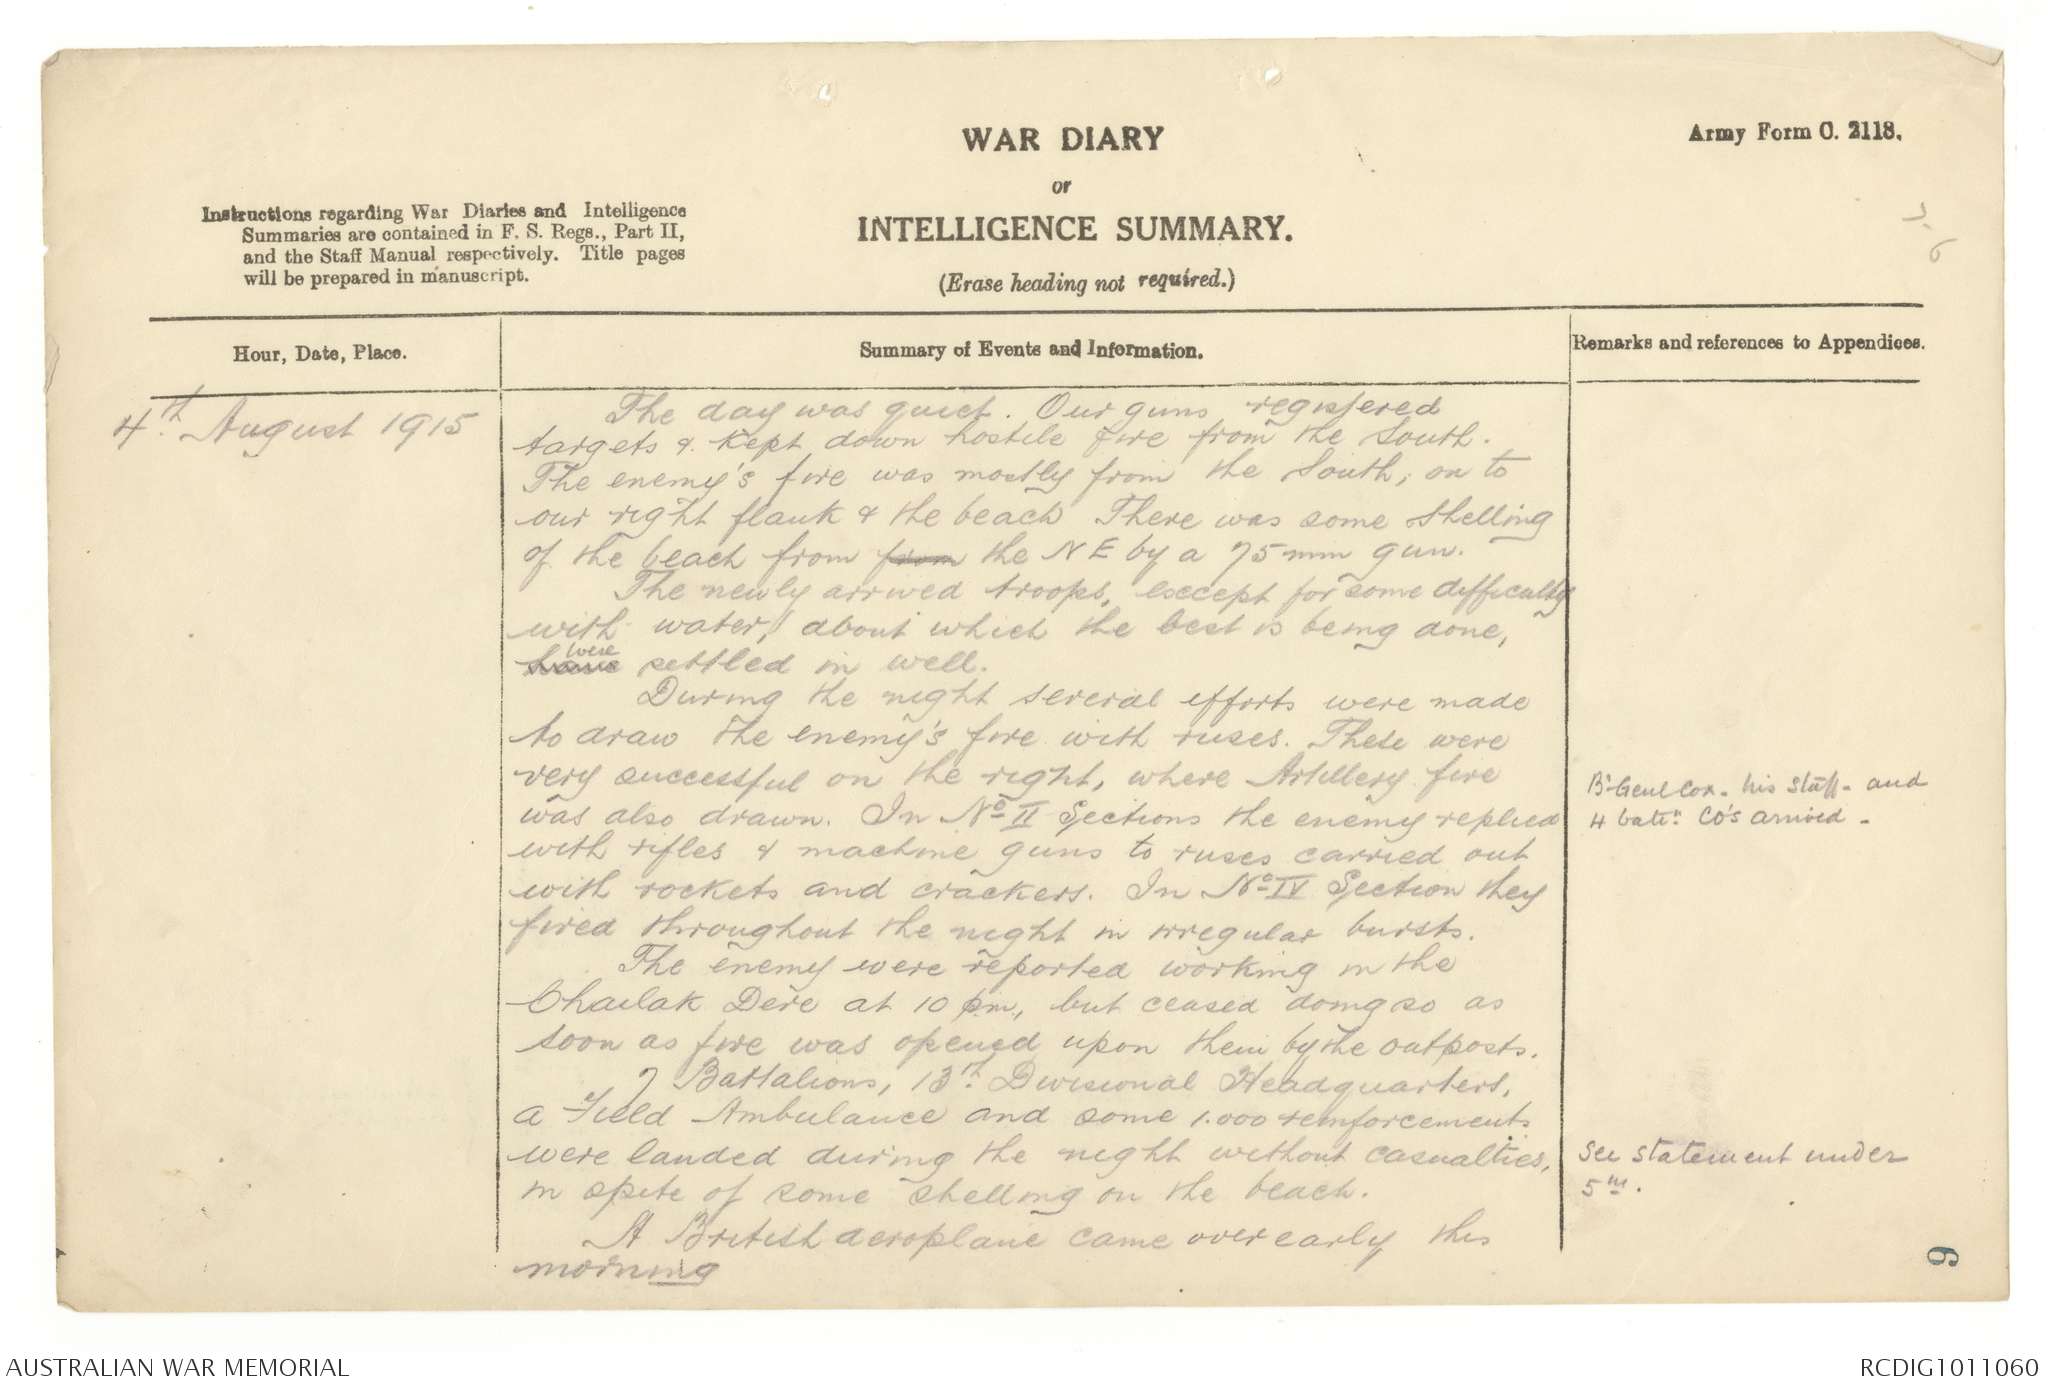 WAR DIARY
or
INTELLIGENCE SUMMARY.
(Erase heading not required.)
Army Form C. 2118.
Instructions regarding War Diaries and Intelligence
Summaries are contained in F. S. Regs., Part II,
and the Staff Manual respectively. Title pages
will be prepared in manuscript.
Hour, Date, Place.
Summary of Events and Information.
Remarks and references to Appendices.
4th August 1915
The day was quiet. Our guns registered
targets & kept down hostile fire from the South.
The enemy's fire was mostly from the South, on to
our right flank & the beach There was some shelling
of the beach from from the NE by a 75 mm gun.
The newly arrived troops, except for some difficulty
with water, about which the best is being done,
have were settled in well.
During the night several efforts were made
to draw the enemy's fire with ruses. These were
very successful on the right, where Artillery fire
was also drawn. In No II Sections the enemy replied
with rifles & machine guns to ruses carried out
with rockets and crackers. In No IV Section they
fired throughout the night in irregular bursts.
The enemy were reported working in the
Chailak Dere at 10 pm, but ceased doing so as
soon as fire was opened upon them by the outposts.
7 Battalions, 13th Divisional Headquarters,
a Field Ambulance and some 1.000 reinforcements
were landed during the night without casualties,
in spite of some shelling on the beach.
A British aeroplane came over early this
morning
Br Genl Cox - his staff - and
4 battn COs arrived -
See statement under
5th.
6
9
AUSTRALIAN WAR MEMORIAL
RCDIG1011060